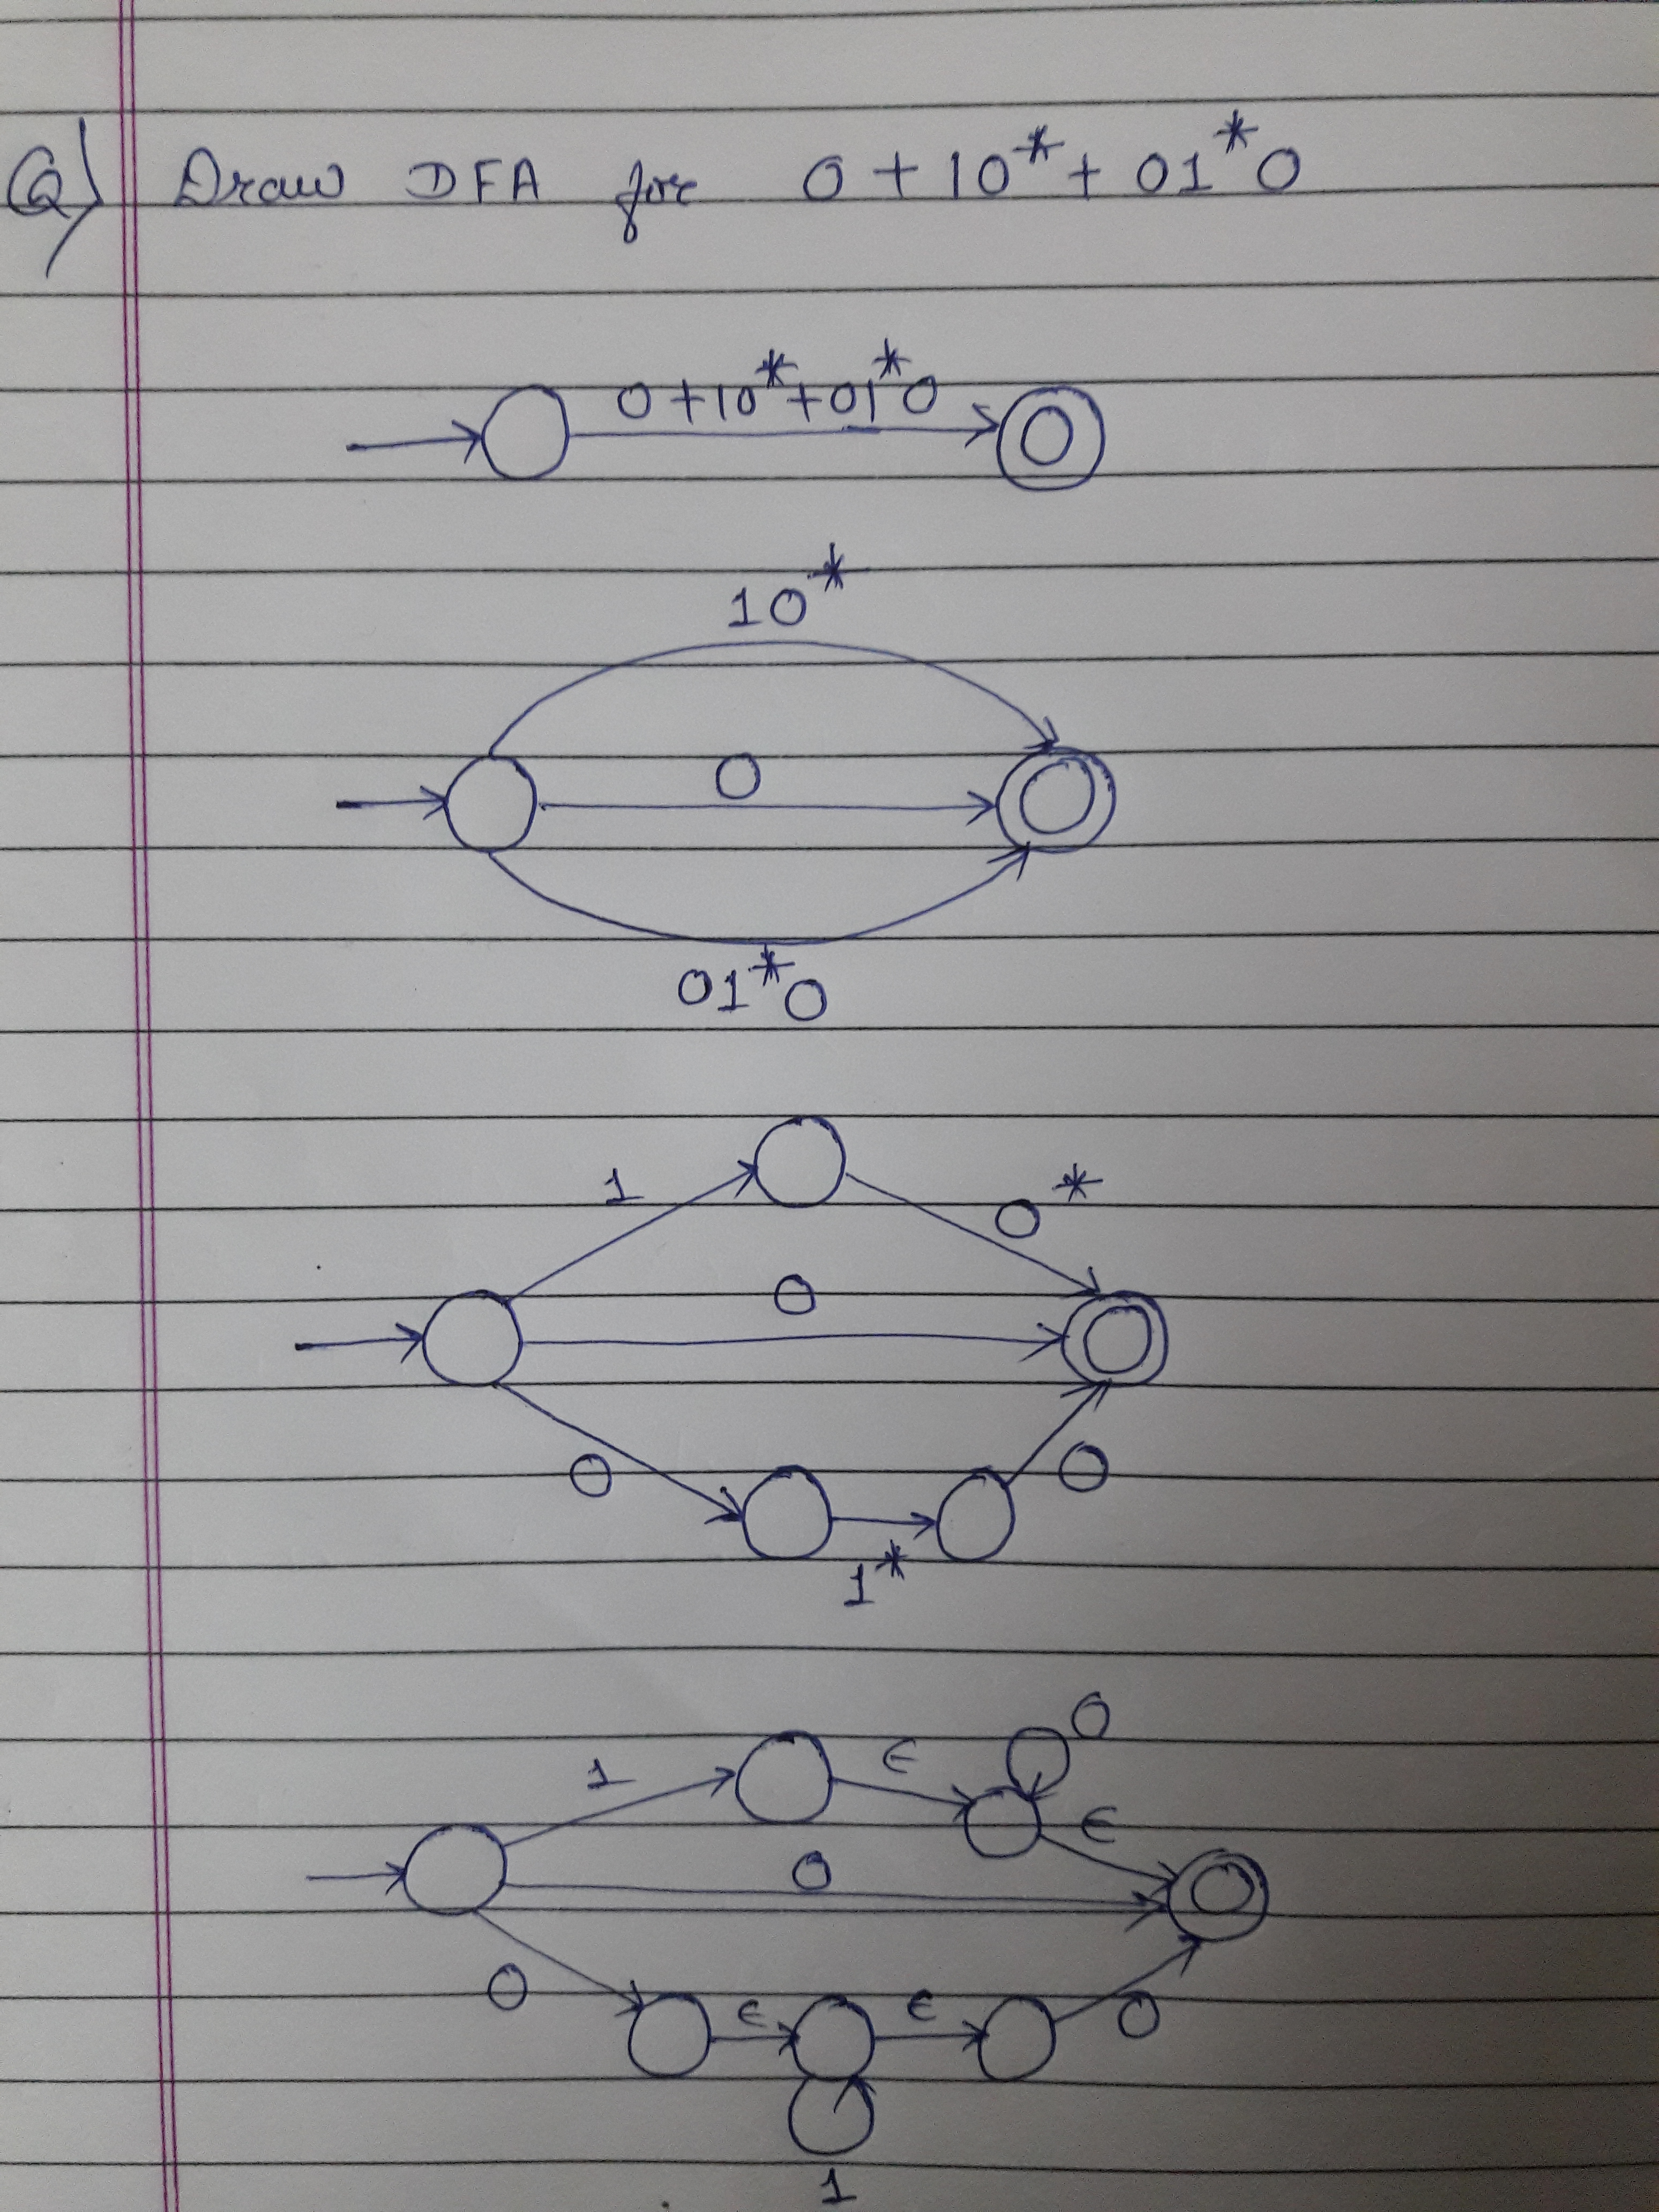 Q) Draw DFA for 0 + 10* + 01*0
0+10*+01*0
10*
0
01*0
1
0*
0
0
1*
0
0
1
ϵ
ϵ
0
0
ϵ
ϵ
0
1